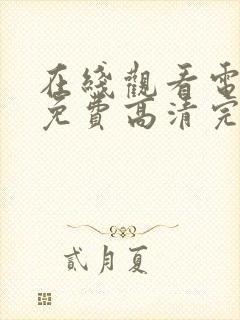 在綫觀看電
免費高清完
貳月夏